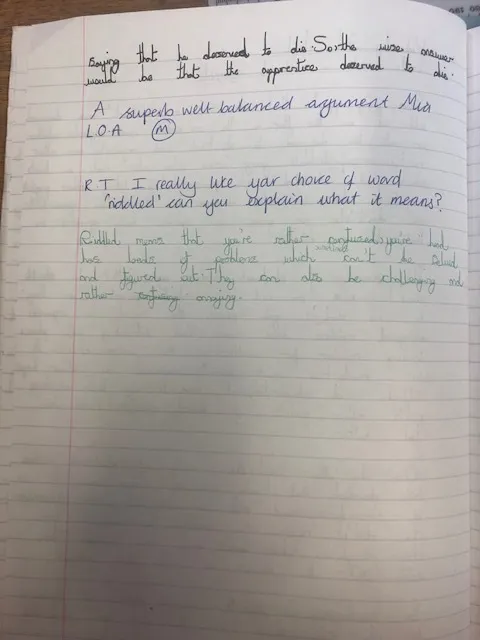 saying that he deserved to die. So, the wise answer
would be that the apprentice deserved to die.
A superb well balanced argument Mia
L.O.A M
R T I really like your choice of word
'riddled' can you explain what it means?
Riddled means that you're rather confused, you've had
has loads of problems which can't be solved
and figured out. They can also be challenging and
rather confusing annoying.